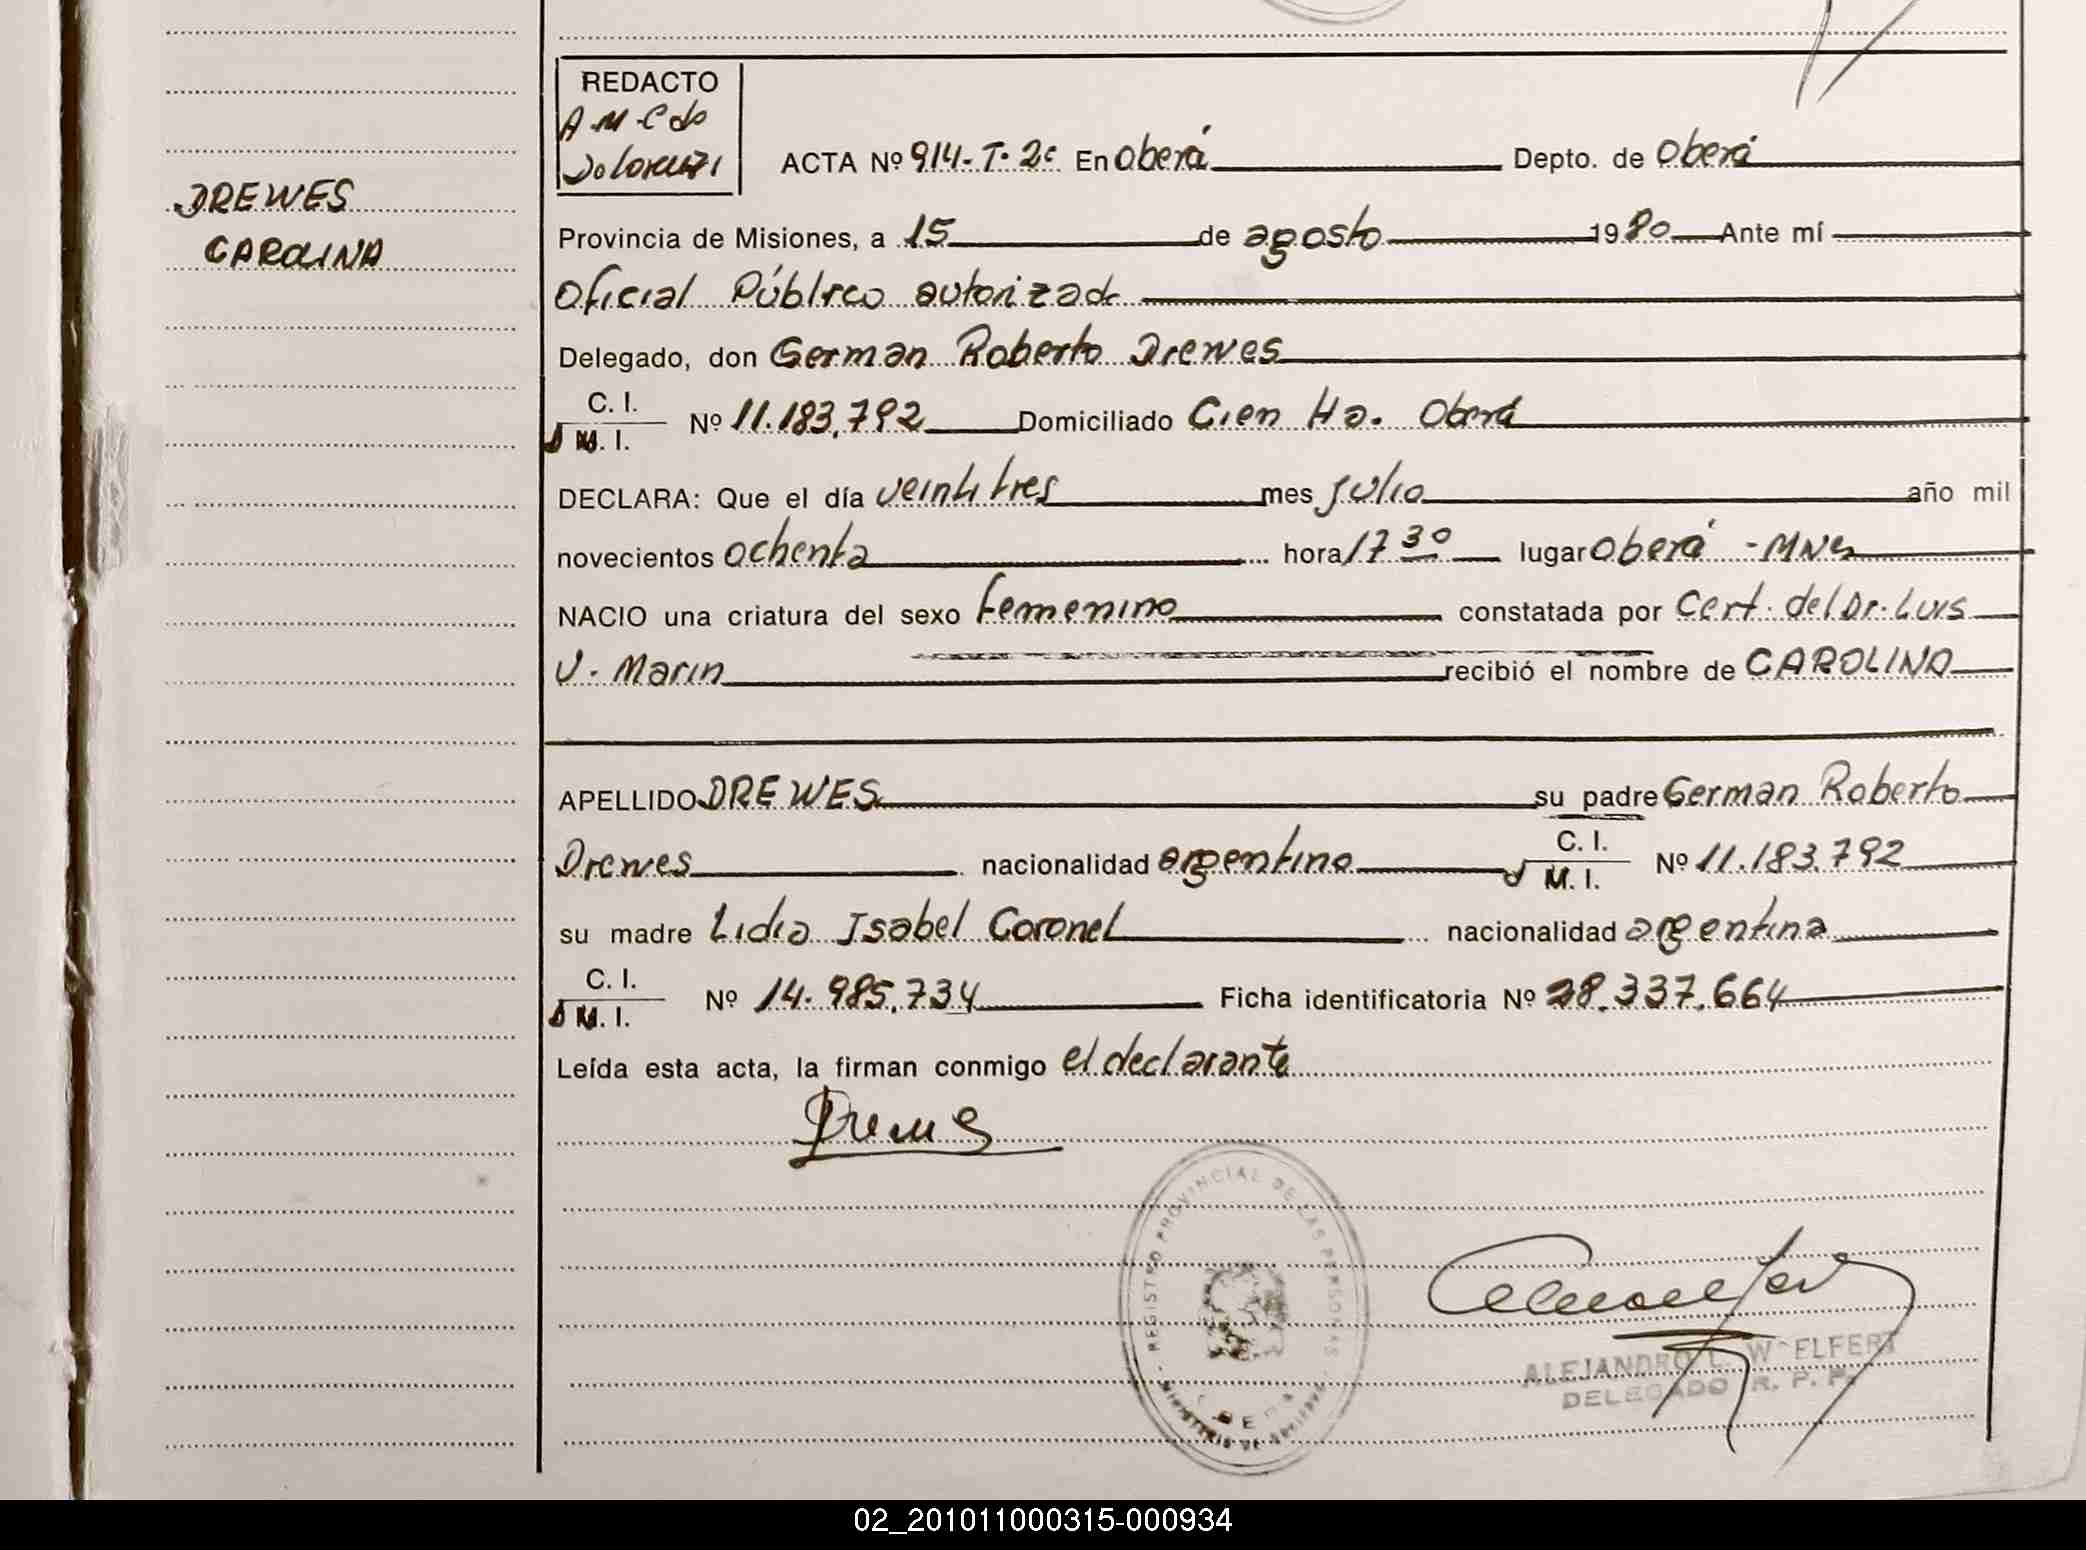 REDACTO
A.M.C de
DREWES
CAROLINA
ACTA Nº 914-T-2º En Oberá Depto. de Oberá
Provincia de Misiones, a 15 de agosto 1980 Ante mí
Oficial Público autorizado
Delegado, don German Roberto Drewes
C. I.
D M. I. Nº 11.183.792 Domiciliado Cien Ha. Oberá
DECLARA: Que el día veintitres mes julio año mil
novecientos ochenta hora 17 30 lugar Oberá - MNS
NACIO una criatura del sexo femenino constatada por Cert. del Dr. Luis
V. Marin recibió el nombre de CAROLINA
APELLIDO DREWES su padre German Roberto
Drewes nacionalidad argentino C. I. D M. I. Nº 11.183.792
su madre Lidia Isabel Coronel nacionalidad argentina
C. I.
D M. I. Nº 14.985.734 Ficha identificatoria Nº 28.337.664
Leída esta acta, la firman conmigo el declarante
Drewes
REGISTRO PROVINCIAL DE LAS PERSONAS
MINISTERIO DE GOBIERNO
ALEJANDRO L. WELFERT
DELEGADO R. P. P.
02_201011000315-000934